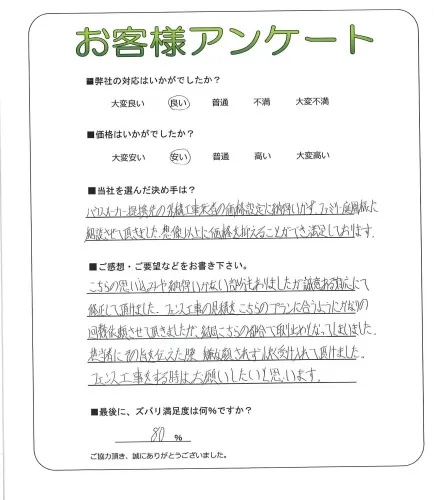 お客様アンケート
■弊社の対応はいかがでしたか？
大変良い 良い 普通 不満 大変不満
■価格はいかがでしたか？
大変安い 安い 普通 高い 大変高い
■当社を選んだ決め手は？
ハウスメーカー提携先の外構工事業者の価格設定に納得いかず、ファミリー庭園様に
相談させて頂きました。想像以上に価格を抑えることができ満足しております。
■ご感想・ご要望などをお書き下さい。
こちらの思い込みや納得いかない部分もありましたが誠意ある対応にて
修正して頂けました。フェンス工事の見積をこちらのプランに合うようにかなりの
回数依頼させて頂きましたが、結局こちらの都合で取り止めとなってしまいました。
担当者にその旨を伝えた際、嫌な顔されず快く受け入れて頂けました。
フェンス工事をする時はお願いしたいと思います。
■最後に、ズバリ満足度は何％ですか？
80 ％
ご協力頂き、誠にありがとうございました。